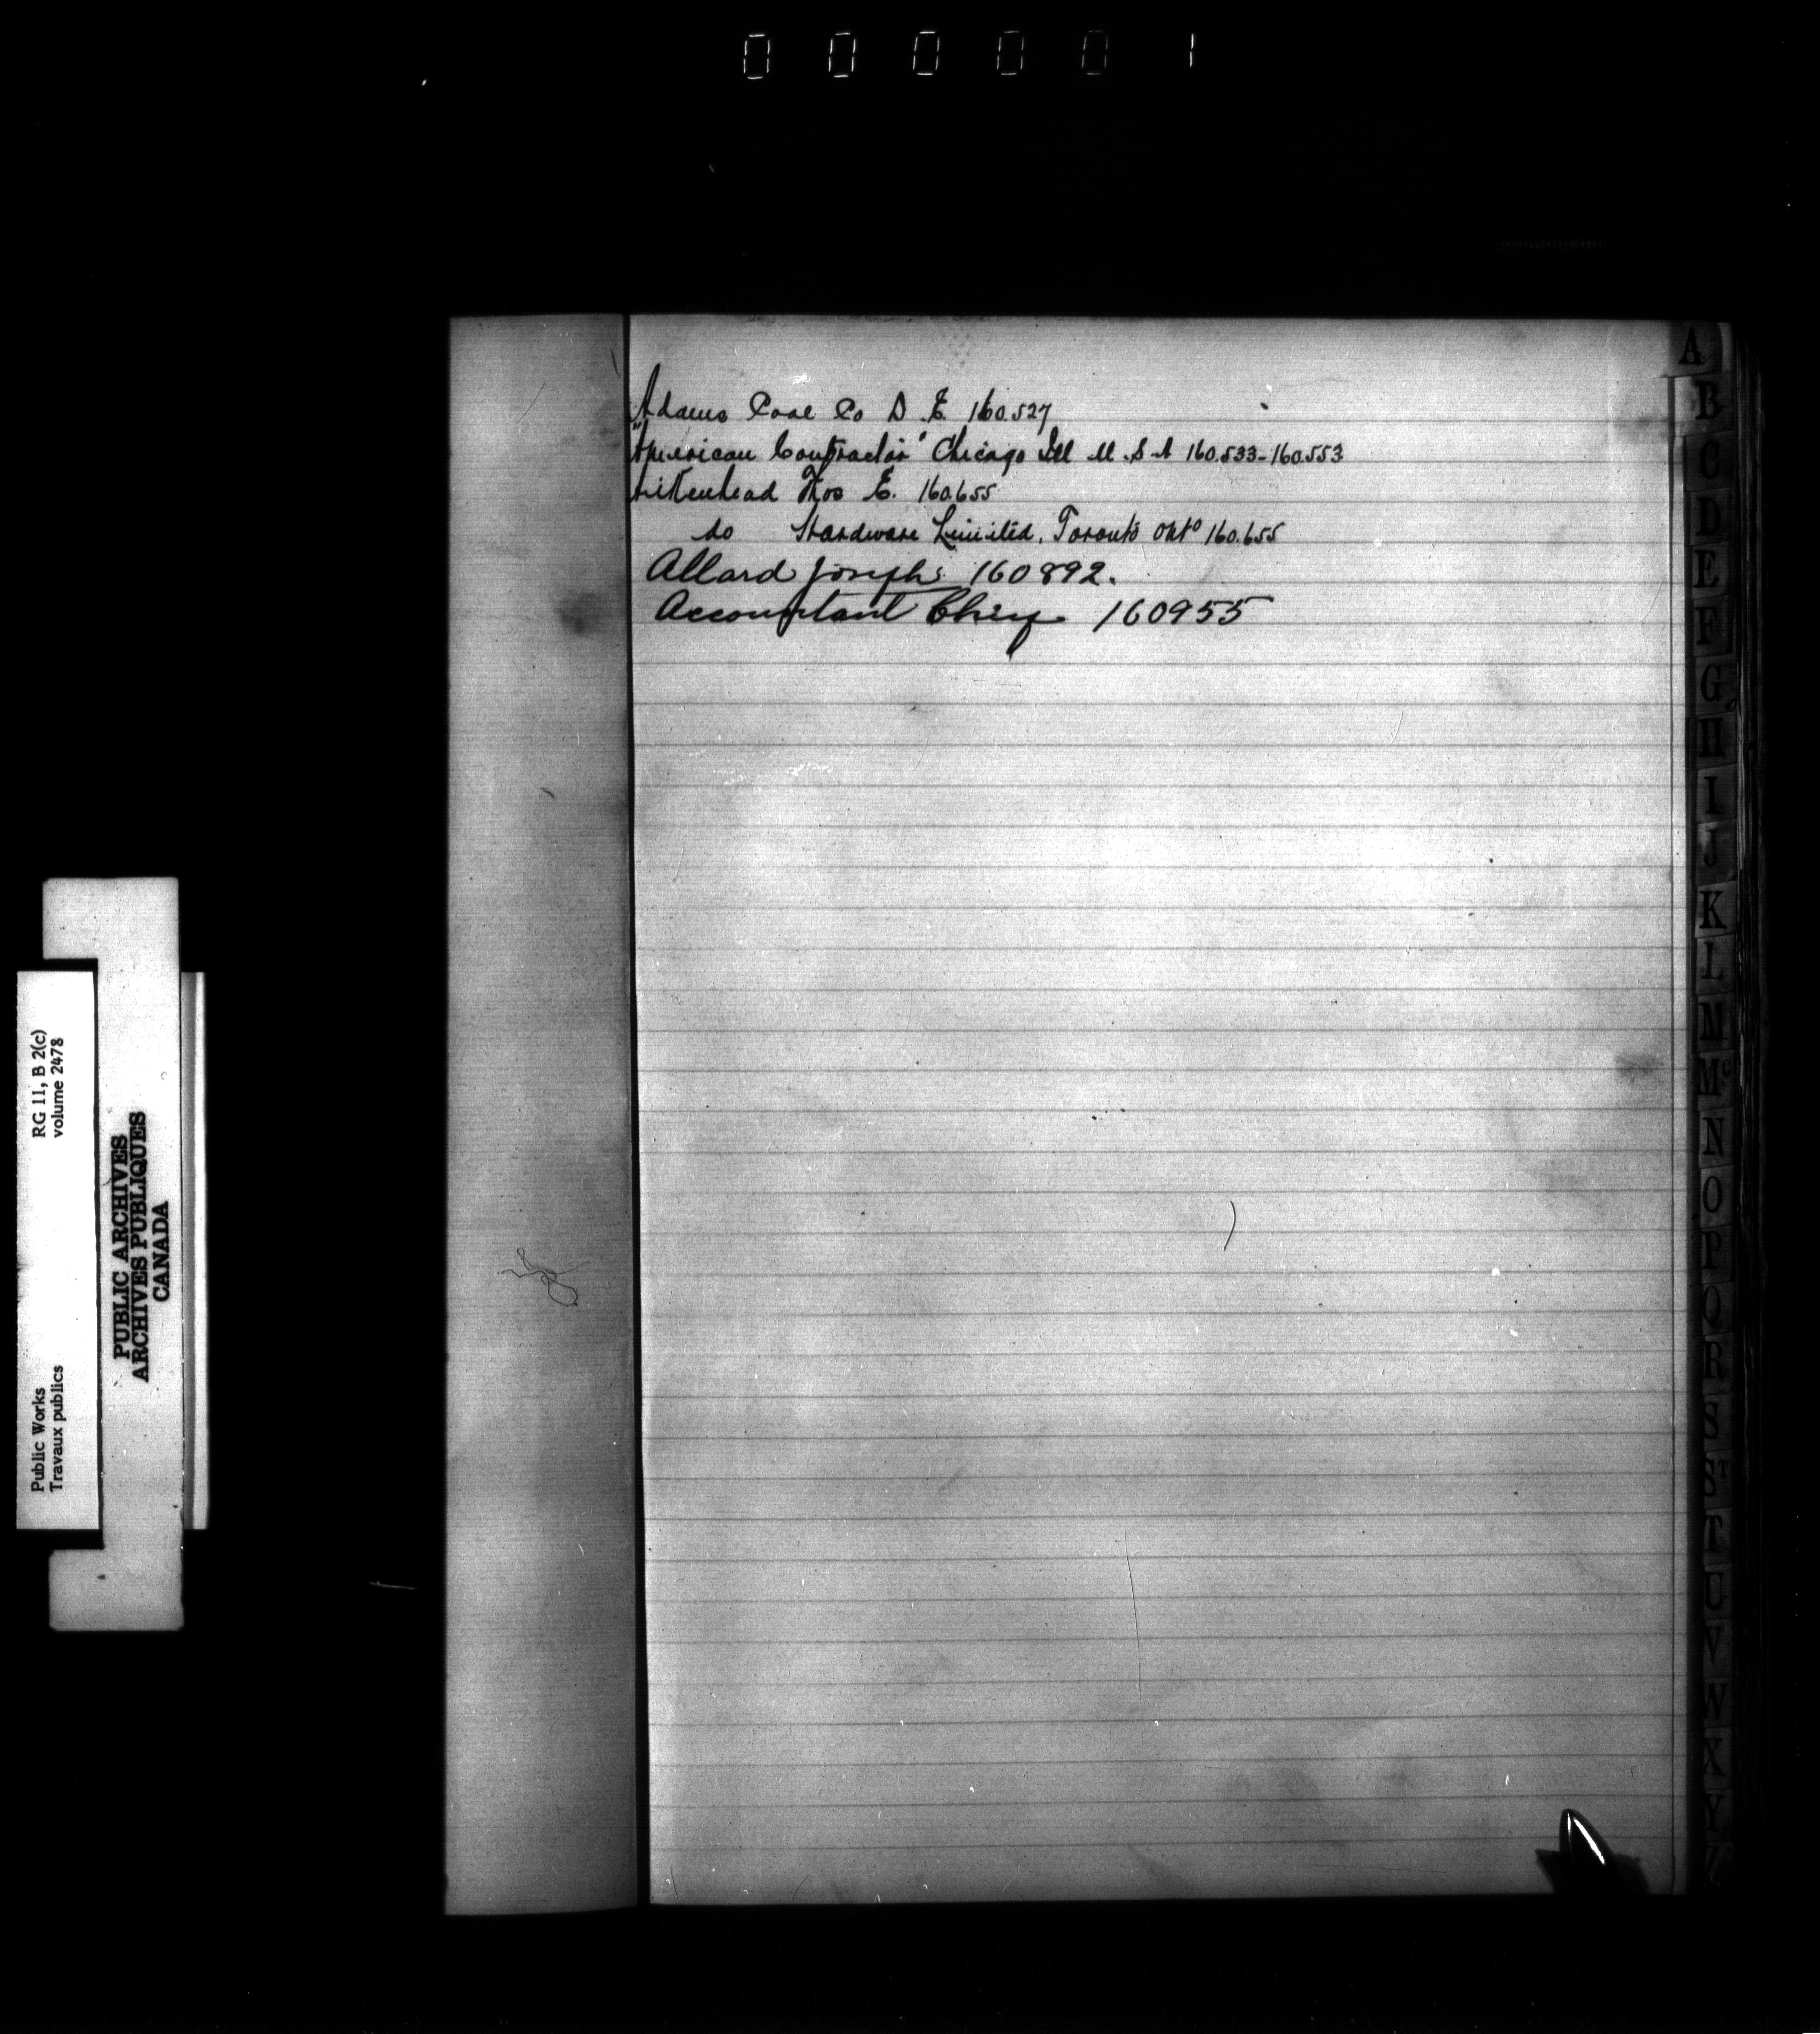 000001
Adams Coal Co D. E. 160.527
"American Contractor" Chicago Ill U.S.A 160.533-160.553
Aitkenhead Thos E. 160.655
do Hardware Limited, Toronto Onto 160.655
Allard Joseph 160892.
Accountant Chief 160955
A
B
C
D
E
F
G
H
I
J
K
L
M
Mc
N
O
P
Q
R
S
ST
T
U
V
W
X
Y
Z
Public Works RG 11, B 2(c)
Travaux publics volume 2478
PUBLIC ARCHIVES
ARCHIVES PUBLIQUES
CANADA